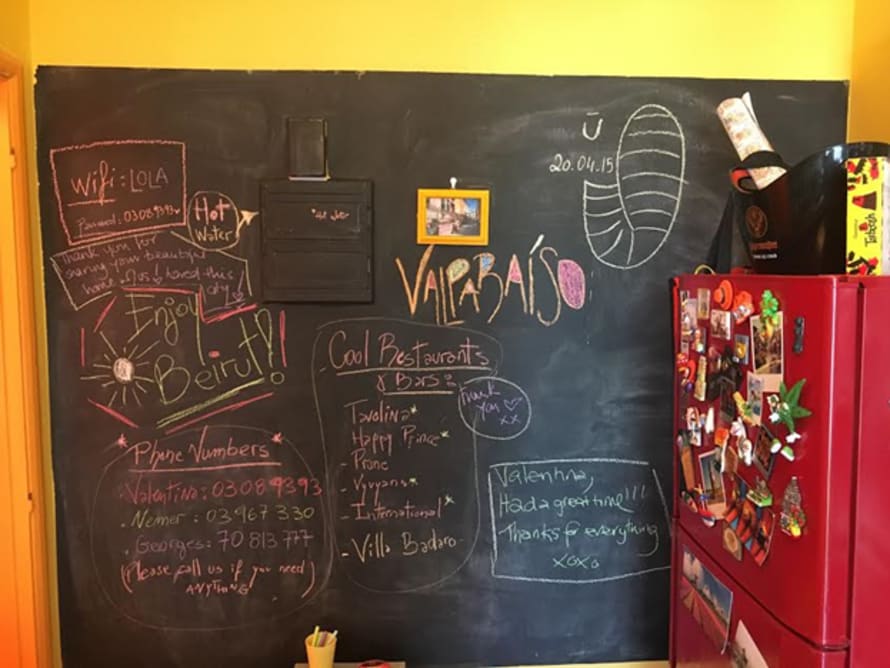 Wifi: LOLA
Password: 03089393
Hot
Water
Thank you for
sharing your beautiful
home
loved this
city!
Enjoy
Beirut!!
Hot Water
Ü
20.04.15
VALPARAÍSO
Cool Restaurants
& Bars:
Tavolina*
Happy Prince*
- Prune
- International*
- Villa Badaro
Thank
you
xx
* Phone Numbers *
. Valentina: 03089393
. Nemer: 03 967 330
. Georges: 70 813 777
(Please call us if you need
ANYTHING)
Valentina,
Had a great time!!!
Thanks for everything
xoxo